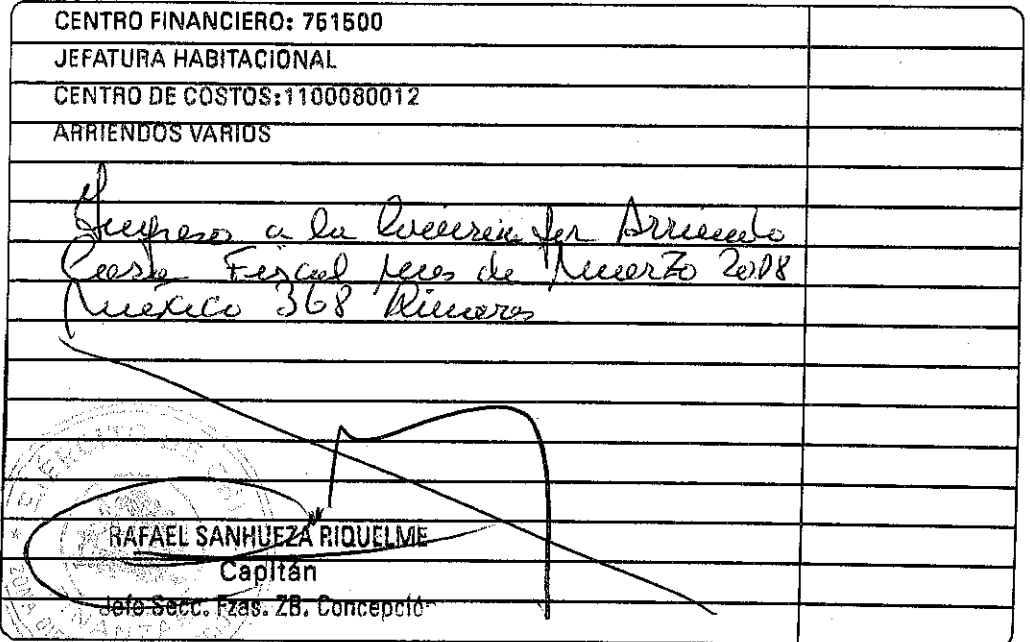 CENTRO FINANCIERO: 751500
JEFATURA HABITACIONAL
CENTRO DE COSTOS:1100080012
ARRIENDOS VARIOS
Ingreso a la por Arriendo
Casa Fiscal mes de Marzo 2008
México 368 Linares
EJERCITO DE CHI
RAFAEL SANHUEZA RIQUELME
Capitán
Jefe Secc. Fzas. ZB. Concepció